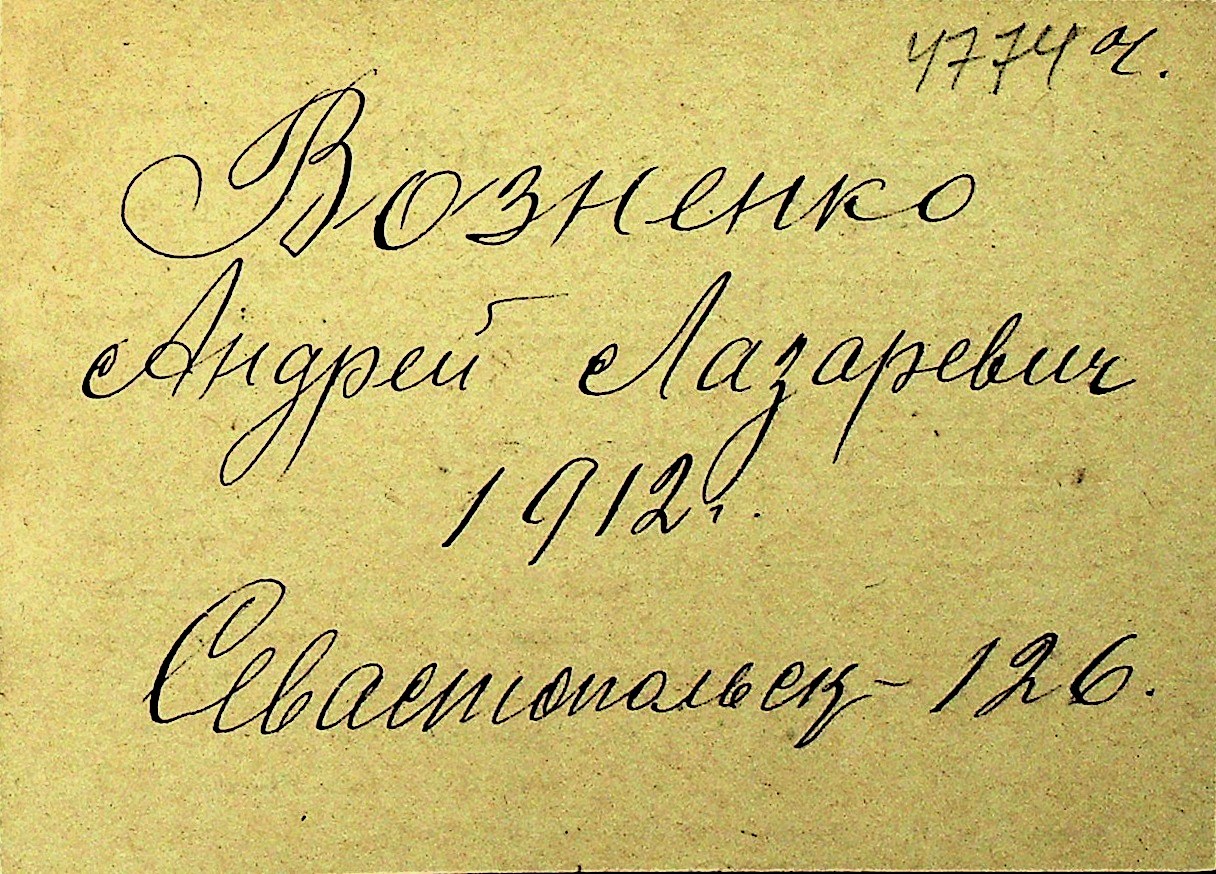 4774 ч.
Возненко
Андрей Лазаревич
1912 г.
Севастопольск - 126.